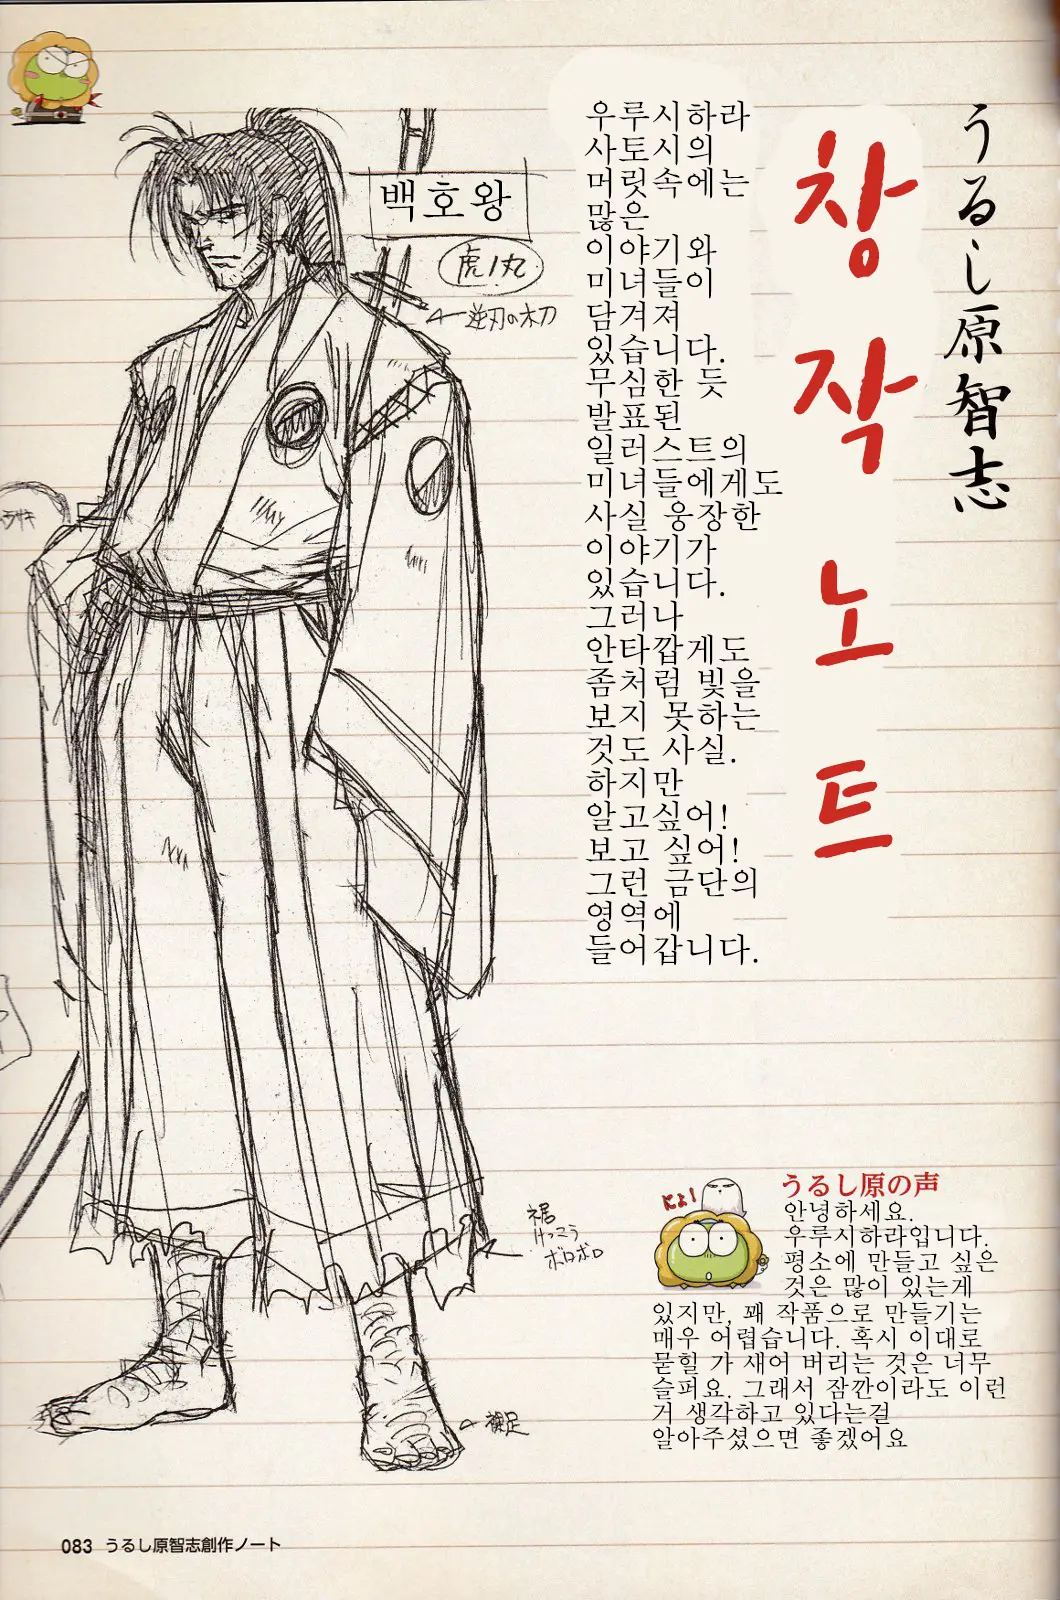 うるし原智志
창작노트
우루시하라
사토시의
머릿속에는
많은
이야기와
미녀들이
담겨져
있습니다.
무심한 듯
발표된
일러스트의
미녀들에게도
사실 웅장한
이야기가
있습니다.
그러나
안타깝게도
좀처럼 빛을
보지 못하는
것도 사실.
하지만
알고싶어!
보고 싶어!
그런 금단의
영역에
들어갑니다.
백호왕
虎ノ丸
逆刃の木刀
裾
けっこう
ボロボロ
裸足
うるし原の声
안녕하세요.
우루시하라입니다.
평소에 만들고 싶은
것은 많이 있는게
있지만, 꽤 작품으로 만들기는
매우 어렵습니다. 혹시 이대로
묻힐 가 새어 버리는 것은 너무
슬퍼요. 그래서 잠깐이라도 이런
거 생각하고 있다는걸
알아주셨으면 좋겠어요
083 うるし原智志創作ノート